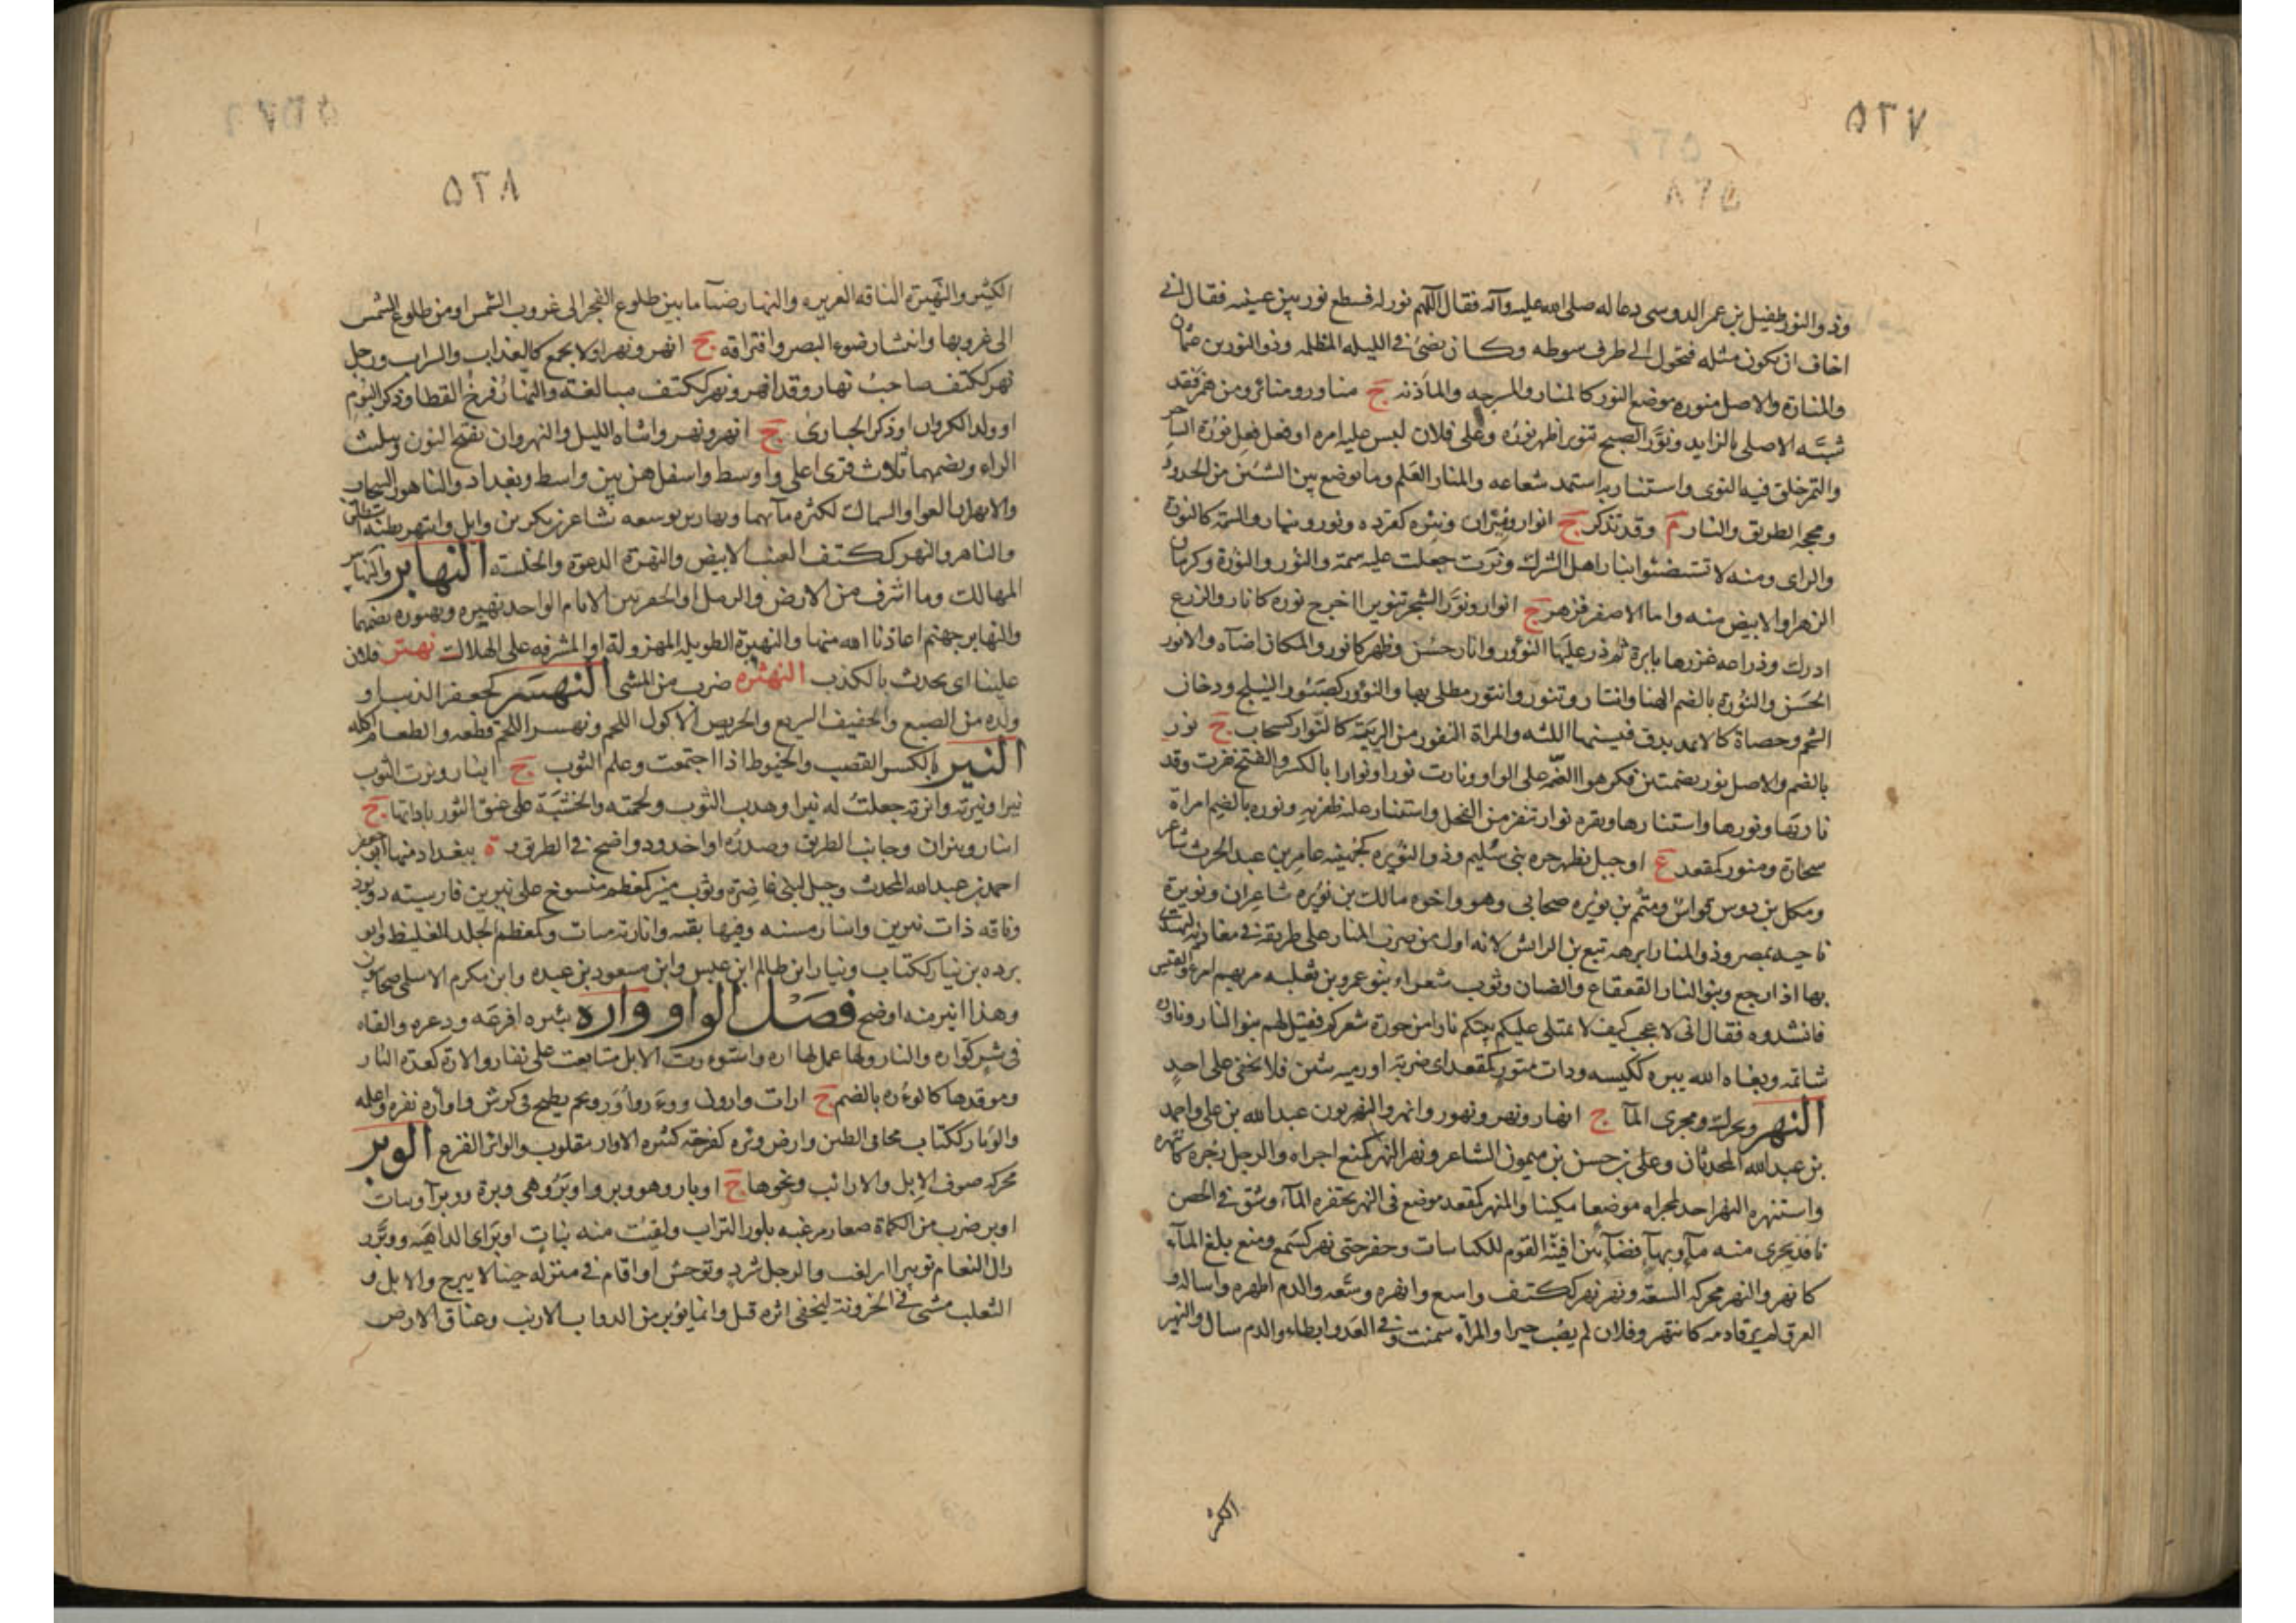 ٥٢٧
وذو النور طفيل بن عمر الدوسى دعا له صلى الله عليه وآله فقال اللهم نور له فسطع نور بين عينيه فقال انى
اخاف ان يكون مثله فتحول الى طرف سوطه وكان يضئ فى الليله المظلمه وذو النورين عثمان
والمنارة والاصل منوره موضع النور كالمنار والمسرجه والمأذنه ج مناور ومنائر ومن همز فقد
شبه الاصلى بالزايد ونور الصبح تنوير اظهر نوره وعلى فلان لبس عليه امره او فعل فعل نورة الساحر
والتمر خلق فيه النوى واستنار به استمد شعاعه والمنار العلم وما توضع بين الشئين من الحدود
ومحجه الطريق والنار م وقد تذكر ج انوار ونيران ونيره كقرده ونور ونيار والسمة كالنورة
والراى ومنه لا تستضئوا بنار اهل الشرك ونرت جعلت عليه سمة والنور والنورة وكرمان
الزهر او الابيض منه واما الاصفر فزهر ج انوار ونور الشجر تنويرا اخرج نوره كانار والزرع
ادرك وذراعه غرزها بابرة ثم ذر عليها النؤور وانار حسن وظهر كانور والمكان اضاه والانور
الحسن والنورة بالضم الهنا وانتار وتنور وانتور مطلى بها والنؤور كصبور النيلج ودخان
الشحم وحصاة كالاثمد يدق فيسفها اللثه والمراة النفور من الريبة كالنوار كسحاب ج نور
بالضم والاصل نور بضمتين فكرهوا الضم على الواو ونارت نورا ونوارا بالكسر والفتح نفرت وقد
نارها ونورها واستنارها وبقره نوار تنفر من الفحل واستنار عليه ظفر به ونوره بالضم امراة
سحارة ومنور كمقعد ع او جبل بظهر حره بنى سليم وذو النويره كجهينه عامر بن عبد الحرث شاعر
ومكمل بن دوس قواس ومتمم بن نويره صحابى وهو واخوه مالك بن نويره شاعران ونويرة
ناحيه بمصر وذو المنار ابرهه تبع بن الرايش لانه اول من ضرب المنار على طريقه فى مغازيه ليهتدى
بها اذا رجع وبنو النار القعقاع والضنان وثوب شعراء بنو عمرو بن ثعلبه مر بهم امرؤ القيس
فانشدوه فقال انى لاعجب كيف لا تمتلى عليكم بيتكم نارا من جودة شعركم فقيل لهم بنو النار وناوره
شاتمه وبغاه الله بيره ككيسه وذات منور كمقعد اى ضربة او رميه تنير فلا تخفى على احد
النهر ويحرك ومجرى المآ ج انهار ونهر ونهور وانهر والنهريون عبد الله بن على واحمد
بن عبد الله المحدثان وعلى بن حسن بن ميمون الشاعر ونهر النهر كمنع اجراه والرجل زجره كانتهره
واستنهر النهر اخذ لمجراه موضعا مكينا والمنهر كمقعد موضع فى النهر يحتفره المآء وشق فى الحصن
نافذ يجرى منه مآ وبهآء فضآء بين افنية القوم للكناسات وحفر حتى نهر كسمع ومنع بلغ المآء
كانهر والنهر محركه السعة ونهر نهر ككتف واسع وانهره وسعه والدم اظهره واساله و
العرق لم يرقا دمه كانتهر وفلان لم يصب خيرا والمراة سمنت وفى العدو ابطاء والدم سال والنهير
الكثير
٥٢٨
الكثير والنهيرة الناقه الغزيره والنهار ضيآء ما بين طلوع الفجر الى غروب الشمس او من طلوع الشمس
الى غروبها وانتشار ضوء البصر وافتراقه ج انهر ونهر او لا يجمع كالعذاب والسراب ورجل
نهر ككتف صاحب نهار وقد انهر ونهر ككتف مبالغة والنهار فرخ القطا وذكر البوم
او ولد الكروان او ذكر الحبارى ج انهر ونهر وانثاه الليل والنهروان بفتح النون وثلث
الراء وبضمهما ثلاث قرى اعلى واوسط واسفل هن بين واسط وبغداد والناهور السحاب
والانهران العوا والسماك لكثرة مآئهما ونهار بن توسعه شاعر من بكر بن وايل وانتهر بطنه استطلق
والناهر والنهر ككتف العنب الابيض والنهرة الدعوة والخلسة النهابر والنهابير
المهالك وما اشرف من الارض والرمل او الحفر بين الاكام الواحد نهبره ونهبوره بضمهما
والنهابر جهنم اعاذنا الله منها والنهبرة الطويله المهزولة او المشرفه على الهلاك نهتر فلان
علينا اى تحدث بالكذب النهثره ضرب من المشى النهسر كجعفر الذيب او
ولده من الضبع والخفيف السريع والحريص الاكول اللحم ونهسر اللحم قطعه والطعام اكله
النير بالكسر القصب والخيوط اذا اجتمعت وعلم الثوب ج انيار ونرت الثوب
نيرا ونيرته وانرته جعلت له نيرا وهدب الثوب ولحمته والخشبة على عنق الثور باداتها ج
انيار ونيران وجانب الطريق وصدره او اخدود واضح فى الطريق و ة ببغداد منها ابو جعفر
احمد بن عبد الله المحدث وجبل لبنى غاضرة وثوب منير كمعظم منسوج على نيرين فارسيته دوپود
وناقه ذات نيرين وانيار مسنه وفيها بقيه وانارته وكمعظم الجلد الغليظ وابو
برده بن نيار ككتاب ونيار ابن ظالم ابن عبس وابن مسعود بن عبده وابن مكرم الاسلمى صحابيون
وهذا انير منه اوضح فصل الواو واره يئره افزعه وذعره والقاه
فى شر كتواره والنار ولها عمل لها اره واستوءرت الابل تتابعت على نفار والارة كعدة النار
وموقدها كالوءره بالضم ج ارات وارون ووءر واور ولحم يطبخ فى كرش واواره نفره واعلمه
والوئار ككتاب محافر الطين وارض وئره كفرحه كثيره الاوار مقلوب والوائر الفزع الوبر
محركه صوف الابل والارانب ونحوها ج اوبار وهو وبر واوبر وهى وبرة ووبرآ وبنات
اوبر ضرب من الكماة صغار مزغبه بلون التراب ولقيت منه بنات اوبر اى الداهيه ووبر
رال النعام توبيرا ازلغب والرجل شرد وتوحش او اقام فى منزله حينا لا يبرح والابل و
الثعلب مشى فى الحزونة ليخفى اثره قيل وانما يوبر من الدواب الارنب وعناق الارض